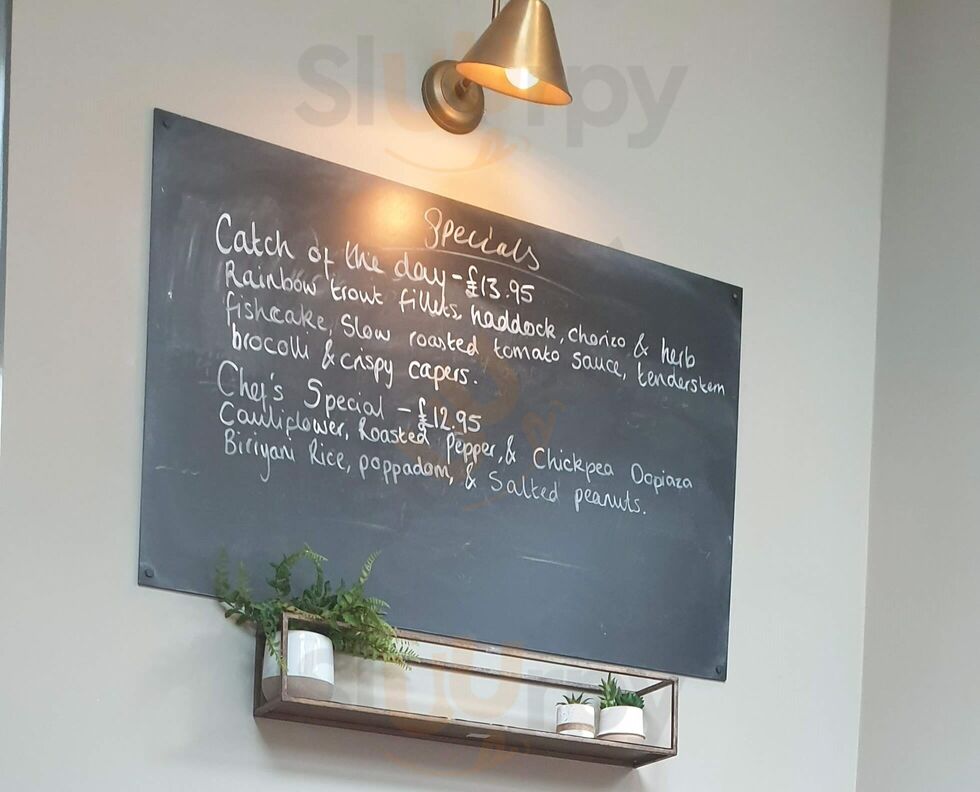 Slurrpy
Specials
Catch of the day - £13.95
Rainbow trout fillets, haddock, chorizo & herb
fishcake, Slow roasted tomato sauce, tenderstem
brocolli & crispy capers.
Chef's Special - £12.95
Cauliflower, Roasted Pepper, & Chickpea Dopiaza
Biriyani Rice, poppadom, & Salted peanuts.
Slurrpy